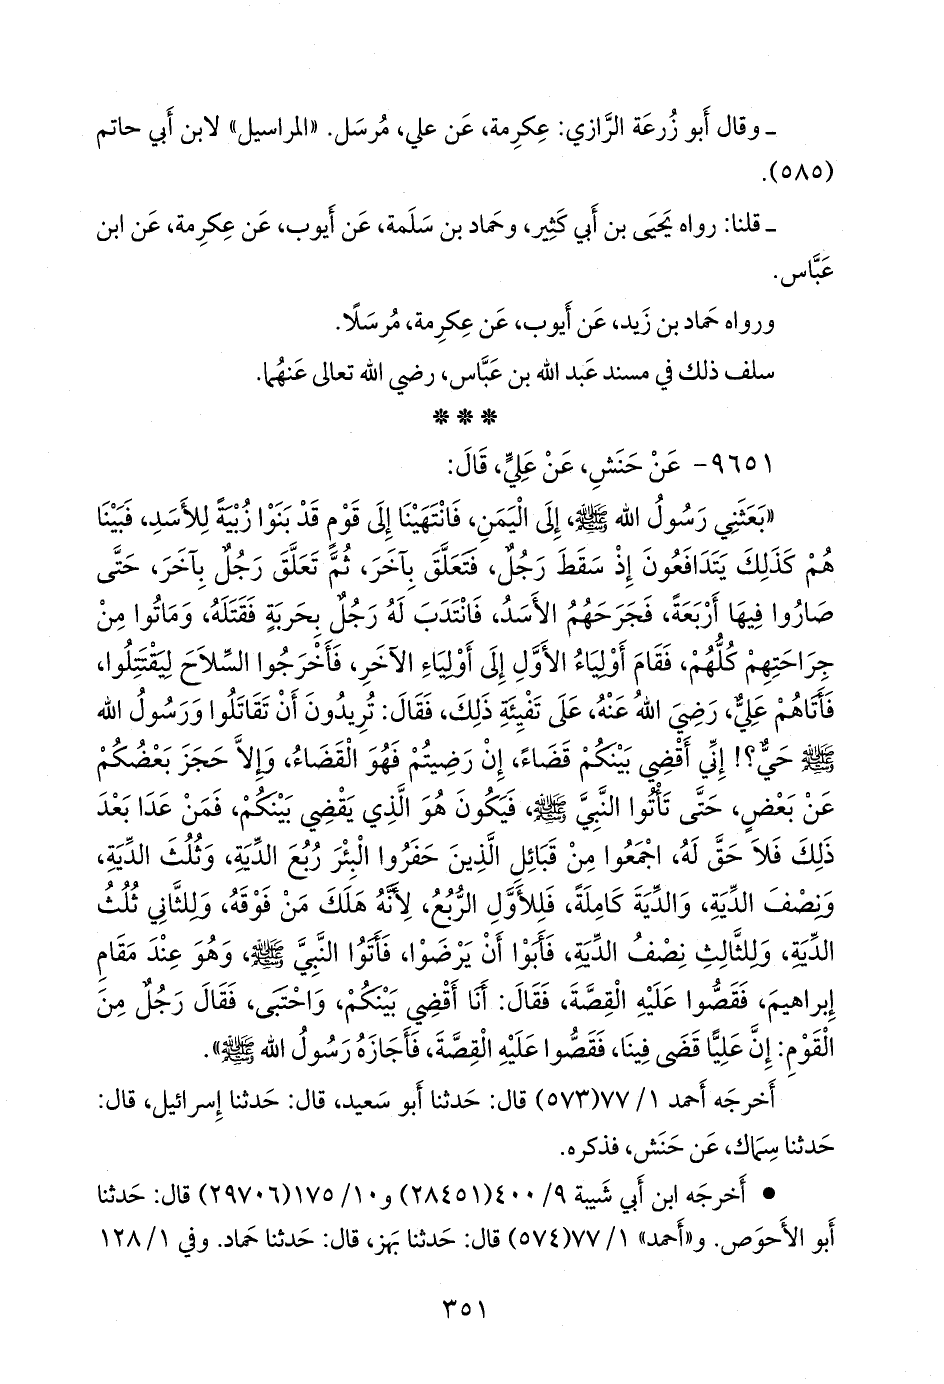 ـ وقال أَبو زُرعَة الرَّازي: عِكرِمة، عَن علي، مُرسَل. «المراسيل» لابن أَبي حاتم
(٥٨٥).
ـ قلنا: رواه يَحيَى بن أَبي كَثِير، وحَماد بن سَلَمة، عَن أَيوب، عَن عِكرِمة، عَن ابن
عَبَّاس.
ورواه حَماد بن زَيد، عَن أَيوب، عَن عِكرِمة، مُرسَلًا.
سلف ذلك في مسند عَبد الله بن عَبَّاس، رضي الله تعالى عَنهُما.
***
٩٦٥١- عَنْ حَنَشٍ، عَنْ عَلِيٍّ، قَالَ:
«بَعَثَنِي رَسُولُ الله ﷺ، إِلَى الْيَمَنِ، فَانْتَهَيْنَا إِلَى قَوْمٍ قَدْ بَنَوْا زُبْيَةً لِلأَسَدِ، فَبَيْنَا
هُمْ كَذَلِكَ يَتَدَافَعُونَ إِذْ سَقَطَ رَجُلٌ، فَتَعَلَّقَ بِآخَرَ، ثُمَّ تَعَلَّقَ رَجُلٌ بِآخَرَ، حَتَّى
صَارُوا فِيهَا أَرْبَعَةً، فَجَرَحَهُمُ الأَسَدُ، فَانْتَدَبَ لَهُ رَجُلٌ بِحَرْبَةٍ فَقَتَلَهُ، وَمَاتُوا مِنْ
جِرَاحَتِهِمْ كُلُّهُمْ، فَقَامَ أَوْلِيَاءُ الأَوَّلِ إِلَى أَوْلِيَاءِ الآخَرِ، فَأَخْرَجُوا السِّلَاحَ لِيَقْتَتِلُوا،
فَأَتَاهُمْ عَلِيٌّ، رَضِيَ اللهُ عَنْهُ، عَلَى تَفْيِئَةِ ذَلِكَ، فَقَالَ: تُرِيدُونَ أَنْ تَقَاتَلُوا وَرَسُولُ الله
ﷺ حَيٌّ؟! إِنِّي أَقْضِي بَيْنَكُمْ قَضَاءً، إِنْ رَضِيتُمْ فَهُوَ الْقَضَاءُ، وَإِلاَّ حَجَزَ بَعْضُكُمْ
عَنْ بَعْضٍ، حَتَّى تَأْتُوا النَّبِيَّ ﷺ، فَيَكُونَ هُوَ الَّذِي يَقْضِي بَيْنَكُمْ، فَمَنْ عَدَا بَعْدَ
ذَلِكَ فَلاَ حَقَّ لَهُ، اجْمَعُوا مِنْ قَبَائِلِ الَّذِينَ حَفَرُوا الْبِئْرَ رُبُعَ الدِّيَةِ، وَثُلُثَ الدِّيَةِ،
وَنِصْفَ الدِّيَةِ، وَالدِّيَةَ كَامِلَةً، فَلِلأَوَّلِ الرُّبُعُ، لِأَنَّهُ هَلَكَ مَنْ فَوْقَهُ، وَلِلثَّانِي ثُلُثُ
الدِّيَةِ، وَلِلثَّالِثِ نِصْفُ الدِّيَةِ، فَأَبَوْا أَنْ يَرْضَوْا، فَأَتَوُا النَّبِيَّ ﷺ، وَهُوَ عِنْدَ مَقَامِ
إِبراهِيمَ، فَقَصُّوا عَلَيْهِ الْقِصَّةَ، فَقَالَ: أَنَا أَقْضِي بَيْنَكُمْ، وَاحْتَبَى، فَقَالَ رَجُلٌ مِنَ
الْقَوْمِ: إِنَّ عَلِيًّا قَضَى فِينَا، فَقَصُّوا عَلَيْهِ الْقِصَّةَ، فَأَجَازَهُ رَسُولُ الله ﷺ».
أَخرجَه أَحمد ١/ ٧٧(٥٧٣) قال: حَدثنا أَبو سَعيد، قال: حَدثنا إِسرائيل، قال:
حَدثنا سِماك، عَن حَنَش، فذكره.
• أَخرجَه ابن أَبي شَيبة ٩/ ٤٠٠(٢٨٤٥١) و١٠/ ١٧٥(٢٩٧٠٦) قال: حَدثنا
أَبو الأَحوَص. و«أَحمد» ١/ ٧٧(٥٧٤) قال: حَدثنا بَهز، قال: حَدثنا حَماد. وفي ١/ ١٢٨
٣٥١